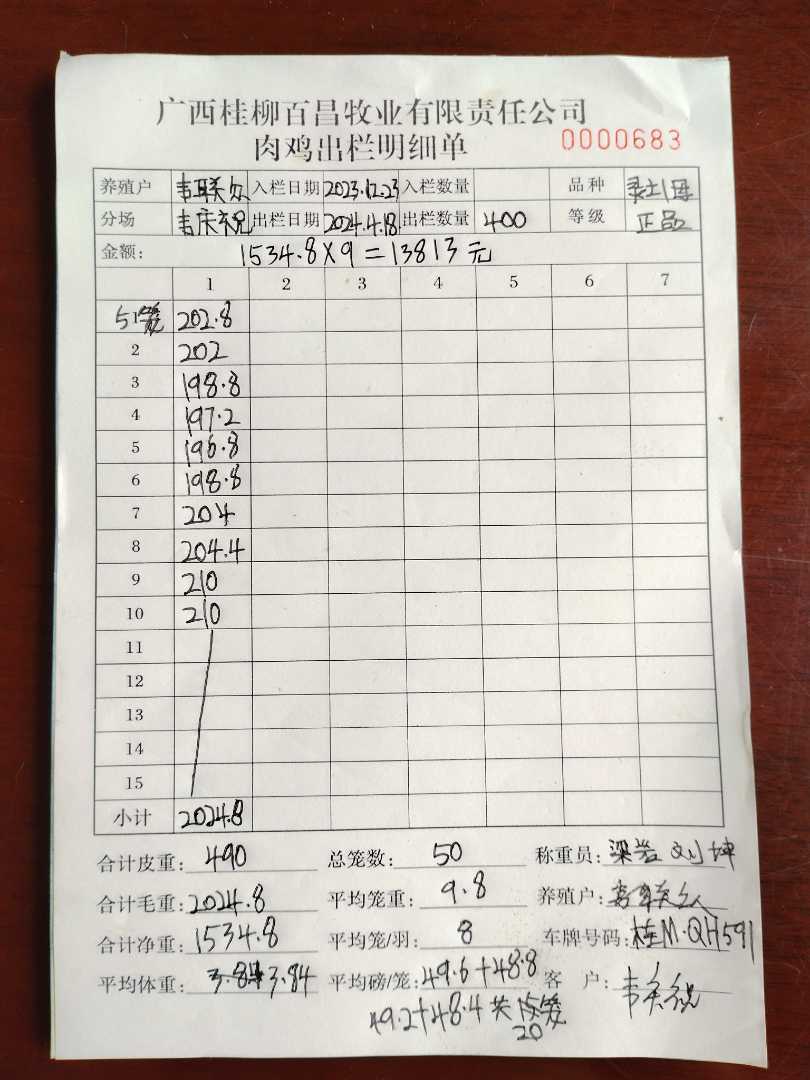 广西桂柳百昌牧业有限责任公司
肉鸡出栏明细单 0000683
养殖户 韦联 入栏日期 2023.12.23 入栏数量 品种
分场 韦庆 出栏日期 2024.4.18 出栏数量 400 等级 正品
金额: 1534.8×9=13813元
1 2 3 4 5 6 7
5笼 1 202.8
2 202
3 198.8
4 197.2
5 196.8
6 198.8
7 204
8 204.4
9 210
10 210
11
12
13
14
15
小计 2024.8
合计皮重: 490 总笼数: 50 称重员: 梁 刘坤
合计毛重: 2024.8 平均笼重: 9.8 养殖户: 韦联
合计净重: 1534.8 平均笼/羽: 8 车牌号码: 桂M·QH591
平均体重: 3.84 平均磅/笼: 49.6+48.8 客户: 韦
49.2+48.4 共 笼
20